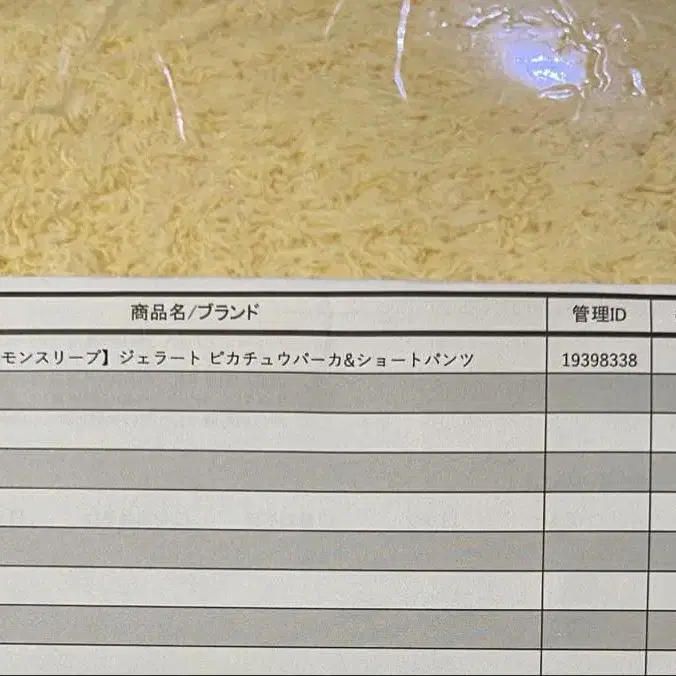 商品名/ブランド 管理ID
モンスリープ】ジェラート ピカチュウパーカ&ショートパンツ 19398338